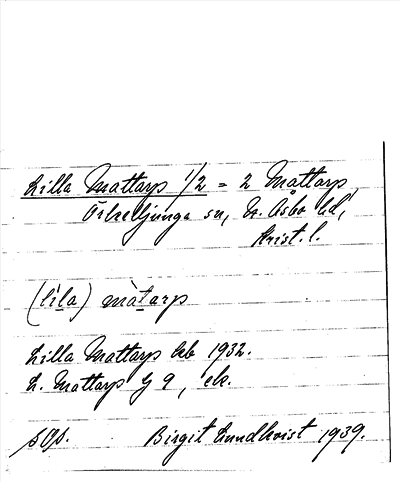 Lilla Mattarp 1/2 = 2 Mattarp,
Örkelljunga sn, N. Åsbo hd,
Krist. l.
(lìla) màtarp
Lilla Mattarp kb 1932.
L. Mattarp G 9, ek.
Birgit Lundkvist 1939.